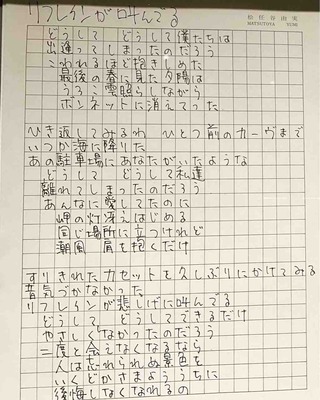 リフレインが叫んでる
松任谷由実
MATSUTOYA YUMI
どうして どうして僕たちは
出逢ってしまったのだろう
こわれるほど抱きしめた
最後の春に見た夕陽は
うろこ雲照らしながら
ボンネットに消えてった
ひき返してみるわ ひとつ前のカーヴまで
いつか海に降りた
あの駐車場にあなたがいたような
どうして どうして私達
離れてしまったのだろう
あんなに愛してたのに
岬の灯冴えはじめる
同じ場所に立つけれど
潮風 肩を抱くだけ
すりきれたカセットを久しぶりにかけてみる
昔気づかなかった
リフレインが悲しげに叫んでる
どうして どうしてできるだけ
やさしくなかったのだろう
二度と会えなくなるなら
人は忘れられぬ景色を
いくどかさまよううちに
後悔しなくなれるの